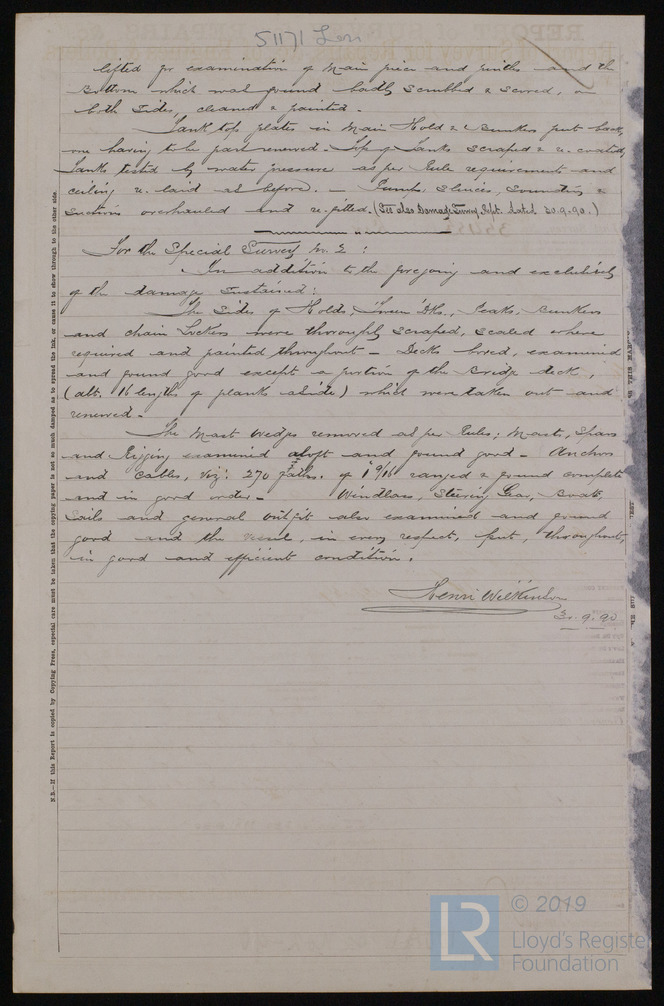 51171 Lon
lifted for examination of main piece and pintles and the
Bottom which was found badly scrubbed & scored, on
both sides, cleaned & painted.
Tank top plates in Main Hold & Bunkers put back,
one having to be part renewed. Top of Tanks scraped & re-coated,
Tanks tested by water pressure as per Rule requirements and
ceiling re-laid as before. — Pumps, Sluices, Sounding &
Suctions overhauled and re-fitted. (See also Damage Survey Rept. dated 30.9.90.)
For the Special Survey No. 2 :
In addition to the foregoing and exclusively
of the damage sustained:
The Sides of Holds, Tween Dks., Peaks, Bunkers
and chain Lockers were throughly scraped, scaled where
required and painted throughout — Decks bored, examined
and found good except a portion of the Bridge deck,
(abt. 16 lengths of planks aside) which were taken out and
renewed —
The Mast Wedges removed as per Rules; Masts, Spars
and Rigging examined aloft and found good — Anchors
and Cables, viz: 270 Faths. of 1 9/16 ranged & found complete
and in good order — Windlass, Steering Gear, Boats,
Sails and general outfit also examined and found
good and the vessel, in every respect, put, throughout,
in good and efficient condition.
Henri Wilkinson
30.9.90
N.B.—If this Report is copied by Copying Press, especial care must be taken that the copying paper is not so much damped as to spread the ink, or cause it to show through to the other side.
LR
© 2019
Lloyd's Register
Foundation